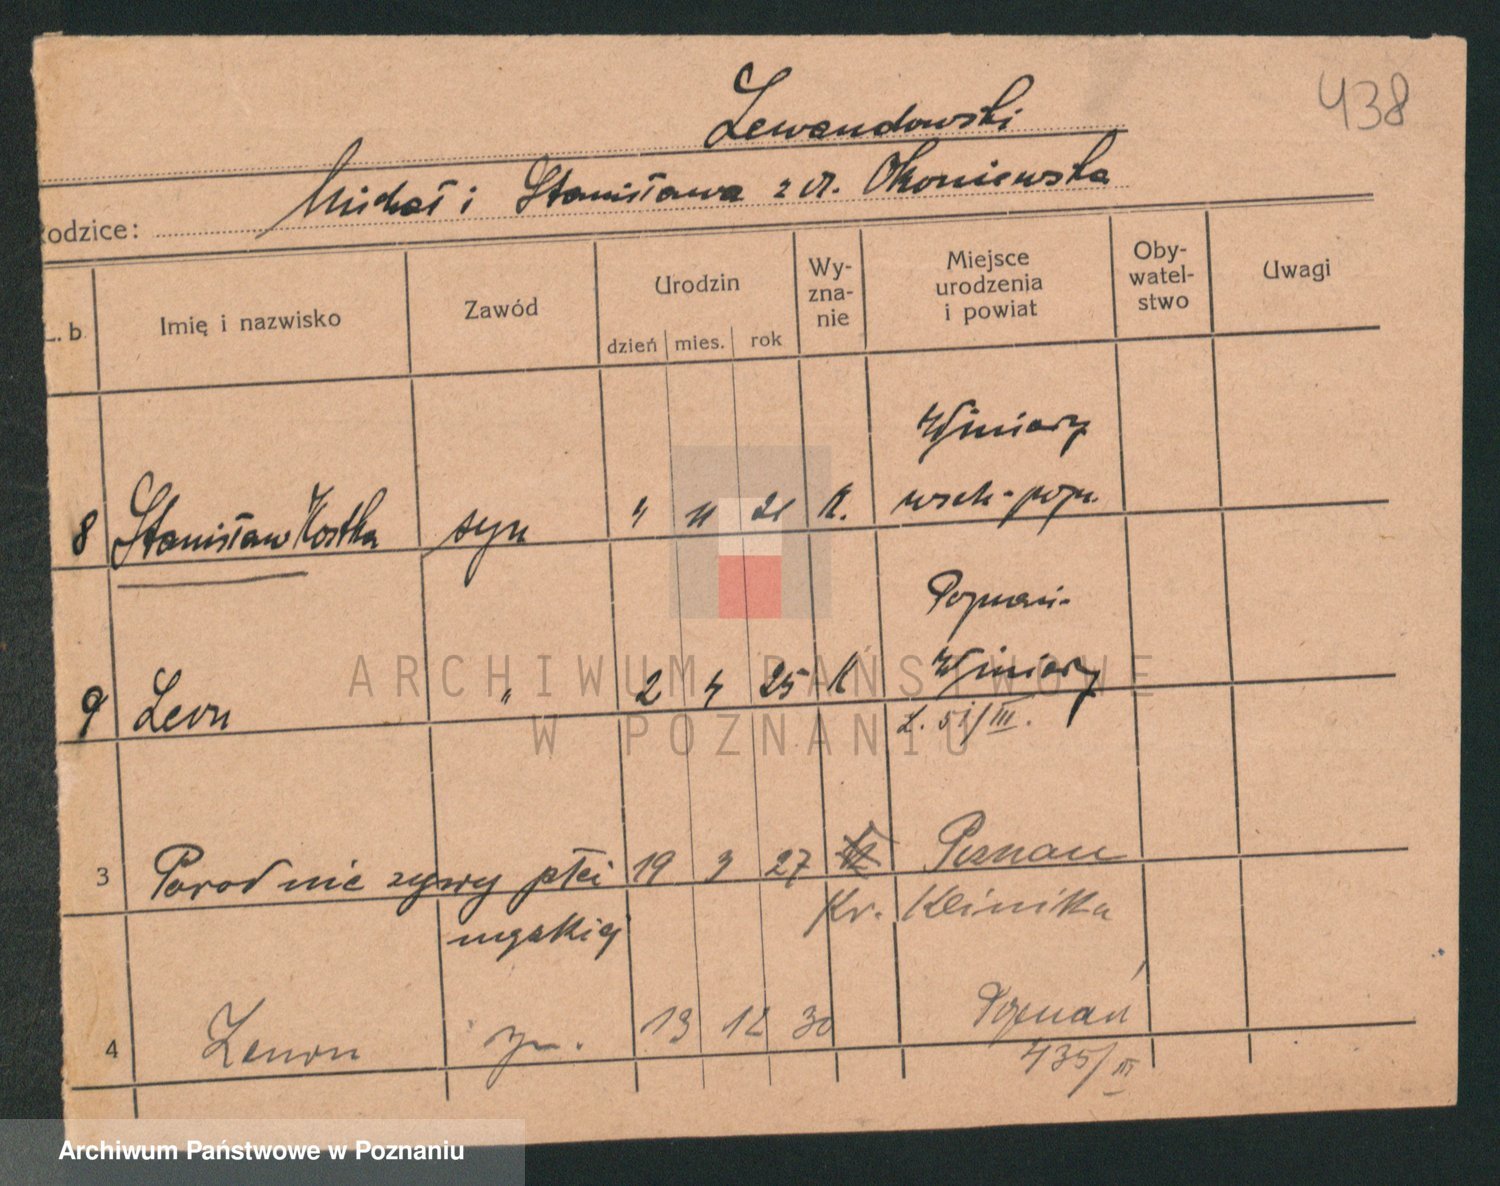 438
Lewandowski
Michał i Stanisława z d. Okoniewska
Rodzice:
L. b. Imię i nazwisko Zawód Urodzin dzień mies. rok Wy-zna-nie Miejsce urodzenia i powiat Oby-watel-stwo Uwagi
Winiary
8 Stanisław Kostka syn 4 11 21 K. wsch-pozn.
Poznań-
9 Leon " 2 4 25 K Winiary
L. 51/III.
3 Porod nie zywy płci 19 3 27 Poznan
męskiej Kr. Klinika
4 Zenon syn. 13 12 30 Poznań
435/III
ARCHIWUM PAŃSTWOWE
W POZNANIU
Archiwum Państwowe w Poznaniu